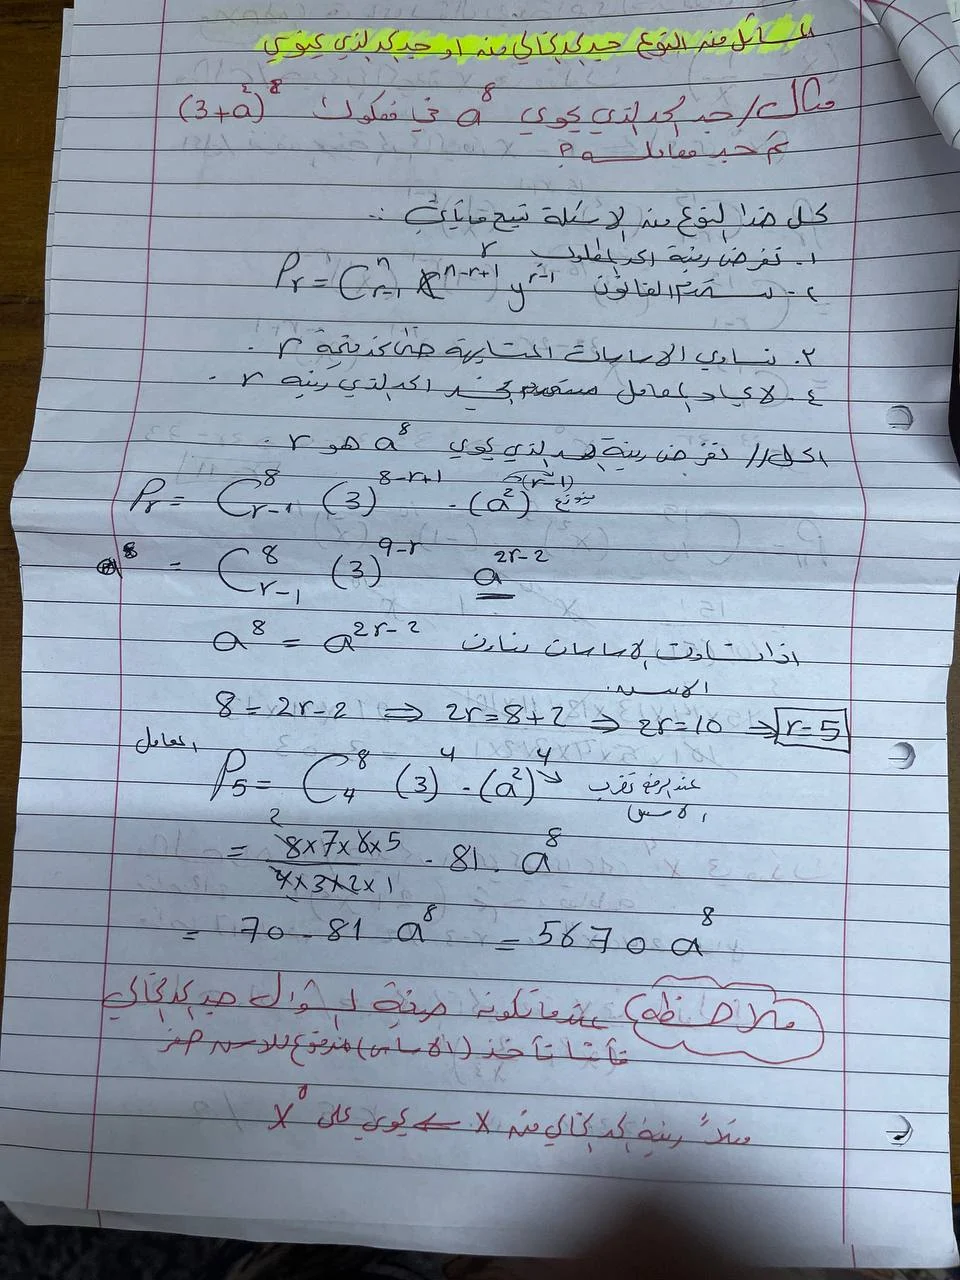 مسائل من النوع جد الحد الخالي من او جد الحد الذي يحوي
مثال/ جد الحد الذي يحوي a⁸ في مفكوك (3+a²)⁸
ثم جد معامله ؟
كل هذا النوع من الاسئلة نتبع ماياتي :-
١- نفرض رتبة الحد المطلوب r
٢- نستخدم القانون Pr = Cⁿᵣ₋₁ xⁿ⁻ʳ⁺¹ yʳ⁻¹
٣. نساوي الاساسات المتشابهة حتى نجد قيمة r .
٤. لايجاد المعامل نجد الحد الذي رتبته r .
الحل// نفرض رتبة الحد الذي يحوي a⁸ هو r .
Pr = C⁸ᵣ₋₁ (3)⁸⁻ʳ⁺¹ . (a²)⁽ʳ⁻¹⁾ نوزع
a⁸ = C⁸ᵣ₋₁ (3)⁹⁻ʳ a²ʳ⁻²
a⁸ = a²ʳ⁻² اذا تساوت الاساسات نقارن
الاسس.
8 = 2r-2 ⇒ 2r = 8+2 ⇒ 2r = 10 ⇒ r=5
المعامل
P₅ = C⁸₄ (3)⁴ . (a²)⁴ عند الرفع نضرب
الاسس
2
= 8×7×6×5 / 4×3×2×1 . 81 . a⁸
= 70 . 81 a⁸ = 5670 a⁸
ملاحظة عندما تكون صيغة السؤال جد الحد الخالي
فأننا نأخذ (الاساس) مرفوع للاس صفر
مثلاً رتبة الحد الخالي من x ← يحوي على x⁰